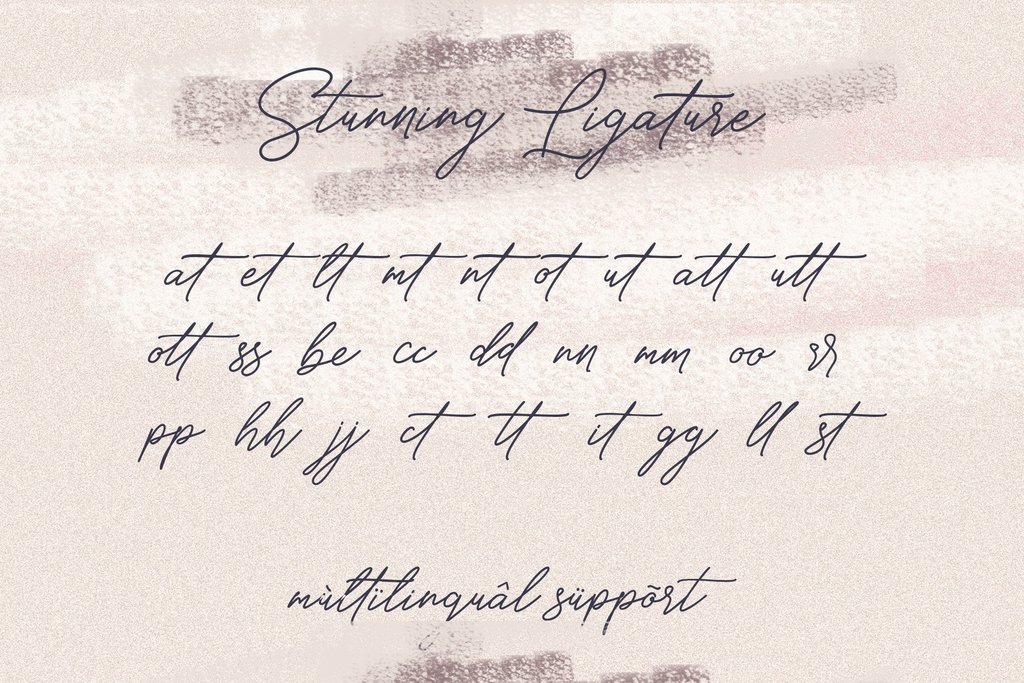 Stunning Ligature
at et lt mt nt ot ut att utt
ott ss be cc dd nn mm oo rr
pp hh jj ct tt it gg ll st
mùltïlinquâl süppõrt